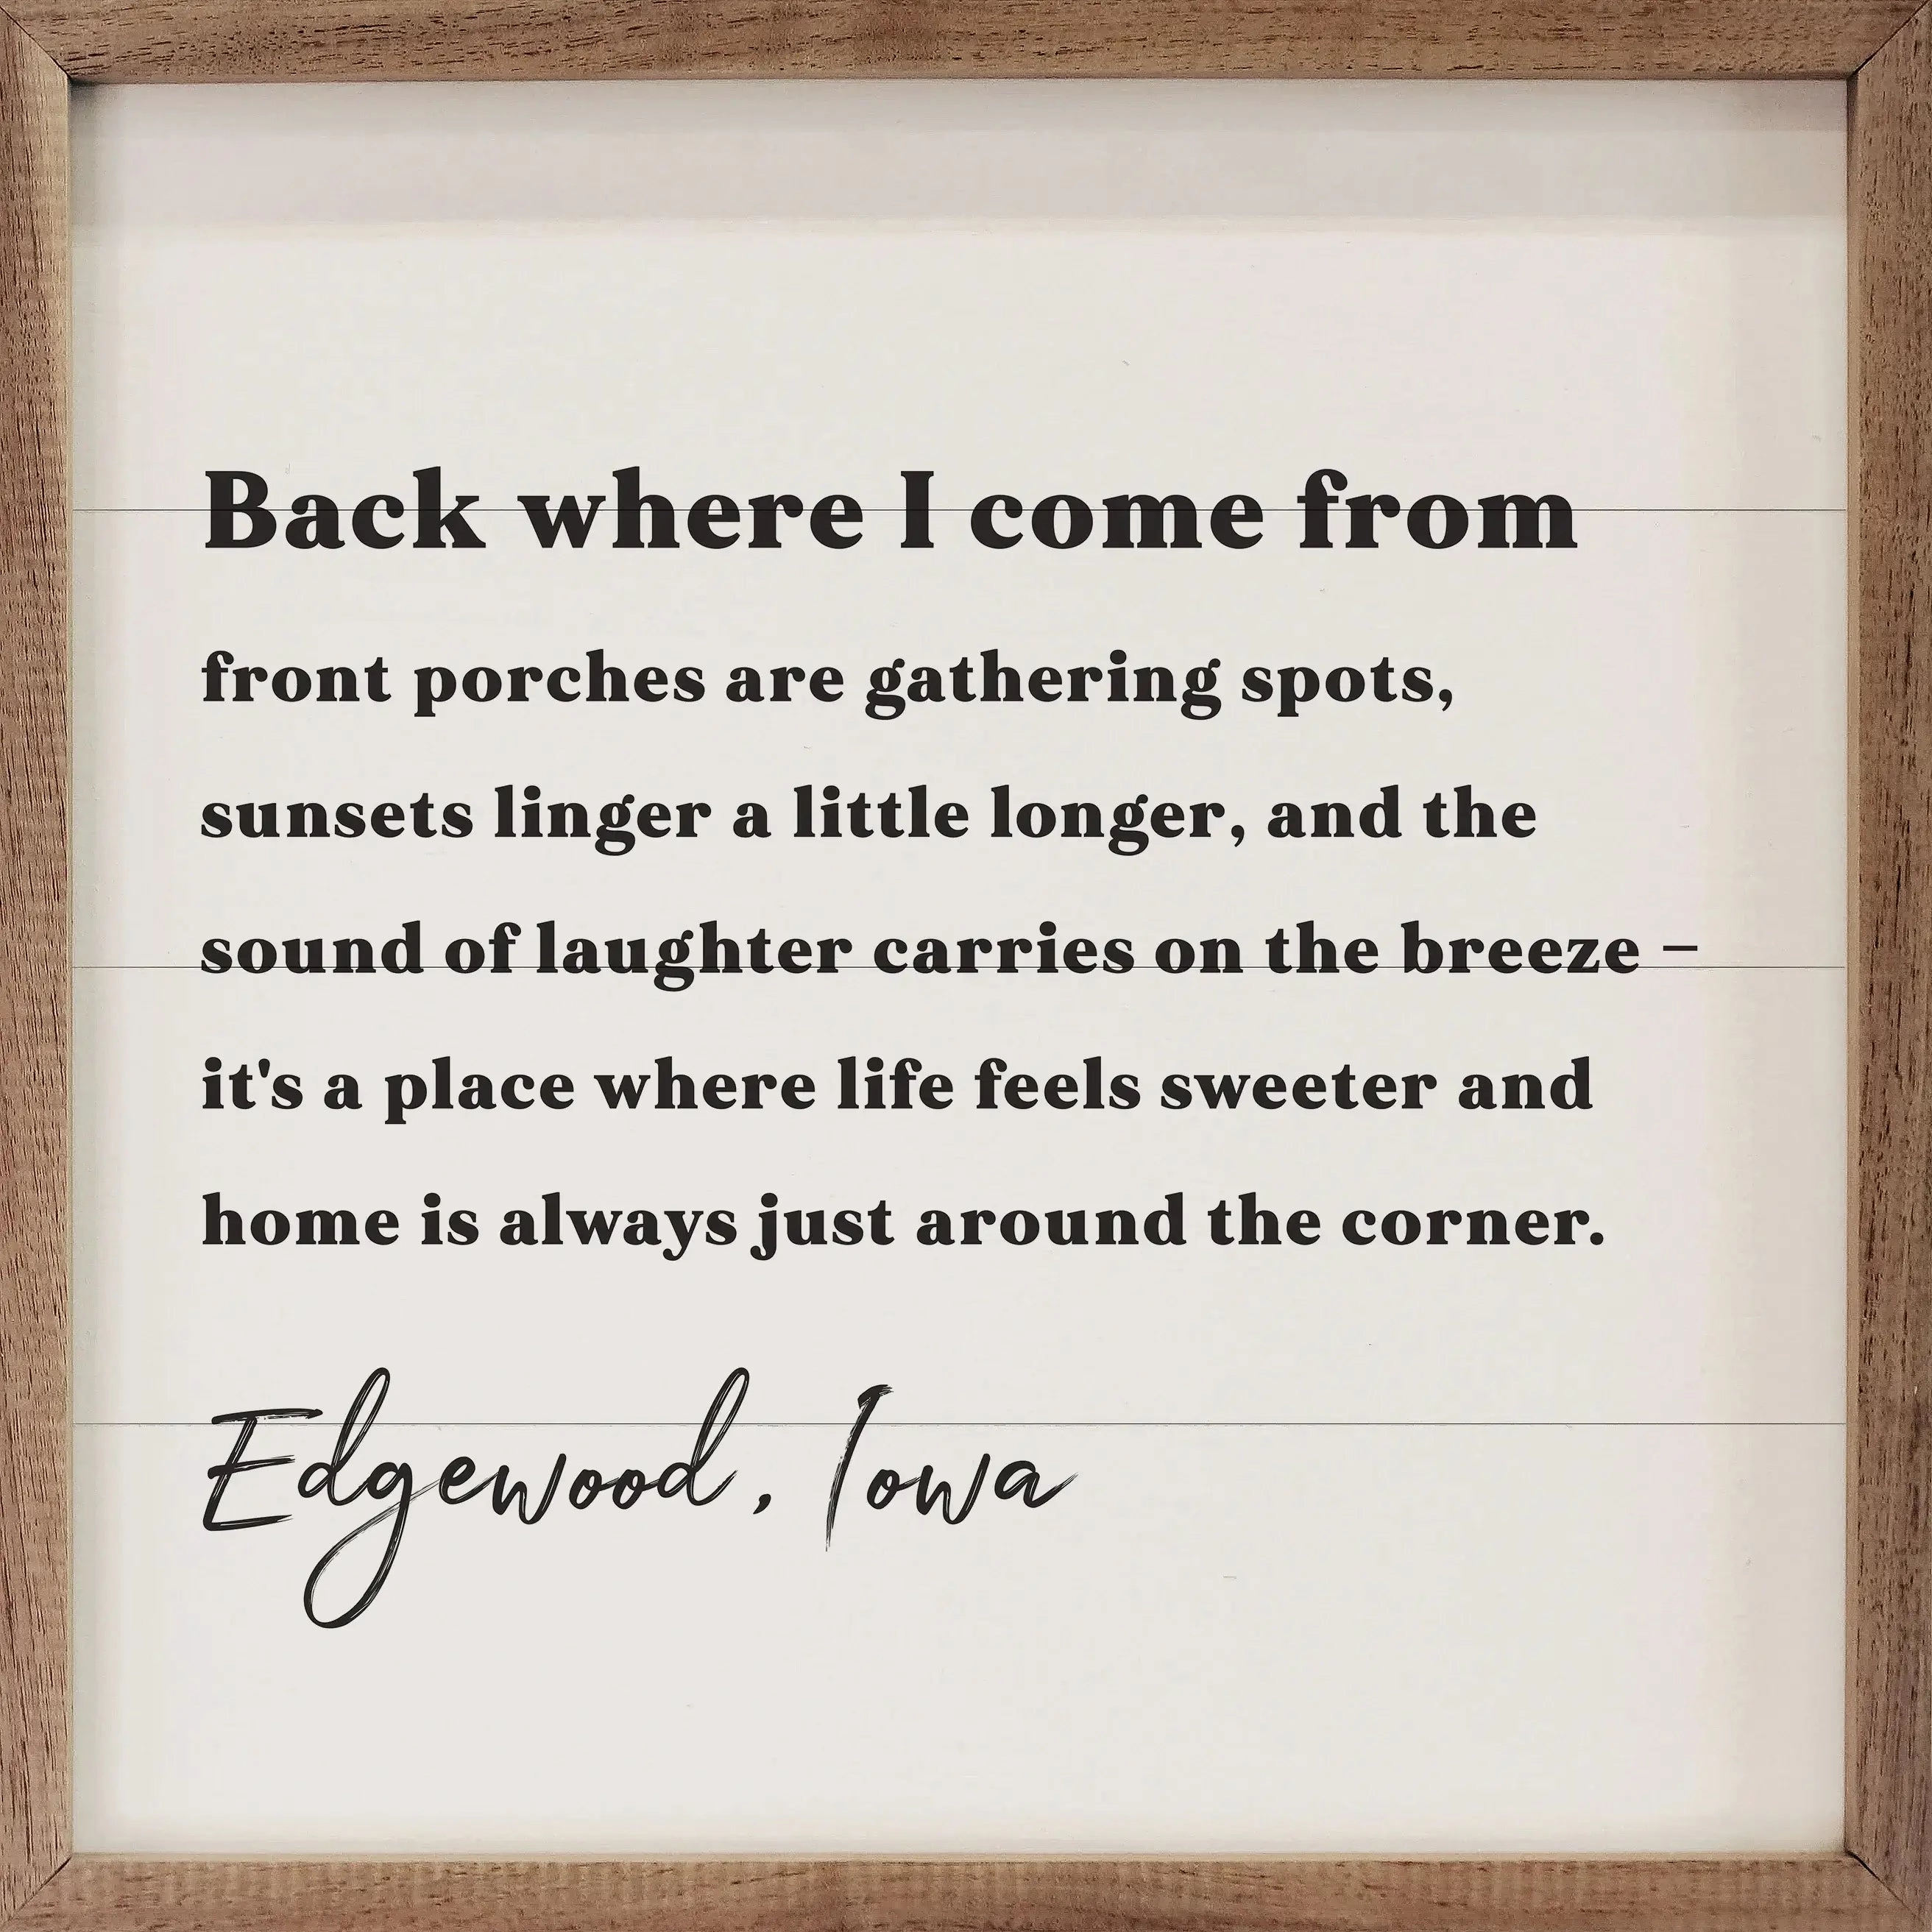 Back where I come from
front porches are gathering spots,
sunsets linger a little longer, and the
sound of laughter carries on the breeze –
it's a place where life feels sweeter and
home is always just around the corner.
Edgewood, Iowa